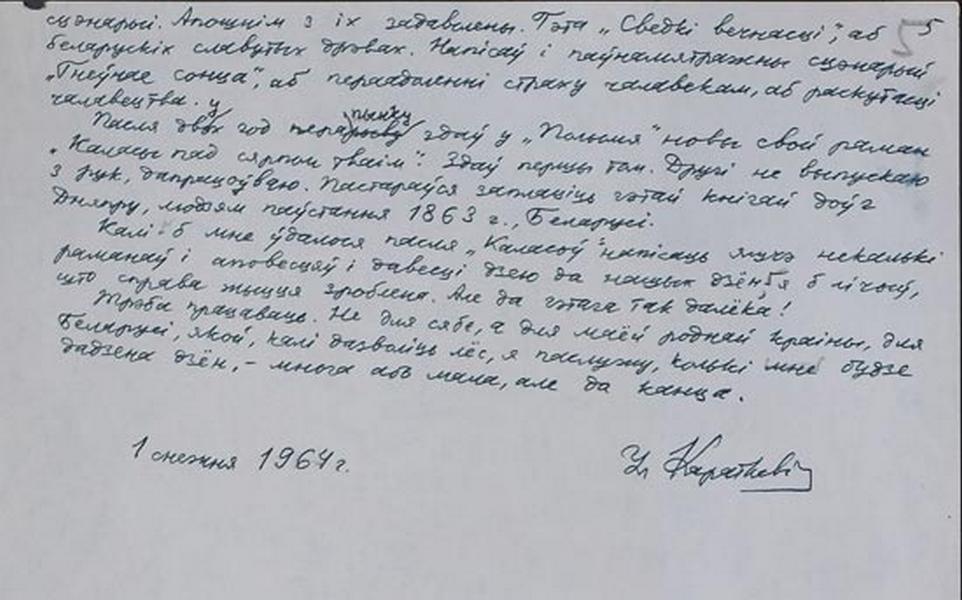 сцэнарыі. Апошнім з іх задаволены. Гэта „Сведкі вечнасці“, аб 5
беларускіх славутых дрэвах. Напісаў і паўнаметражны сцэнарый
„Гнеўнае сонца“, аб пераадоленні страху чалавекам, аб раскутасці
чалавецтва.
Пасля двух год перапынку здаў у „Полымя“ новы свой раман
„Каласы пад сярпом тваім“. Здаў першы том. Другі не выпускаю
з рук, дапрацоўваю. Пастараўся заплаціць гэтай кнігай доўг
Дняпру, людзям паўстання 1863 г., Беларусі.
Калі б мне ўдалося пасля „Каласоў“ напісаць яшчэ некалькі
раманаў і аповесцяў і давесці дзею да нашых дзён, я б лічыў,
што справа жыцця зроблена. Але да гэтага так далёка!
Трэба працаваць. Не для сябе, а для маёй роднай краіны, для
Беларусі, якой, калі дазволіць лёс, я паслужу, колькі мне будзе
дадзена дзён, – многа або мала, але да канца.
1 снежня 1964 г.
Ул Караткевіч